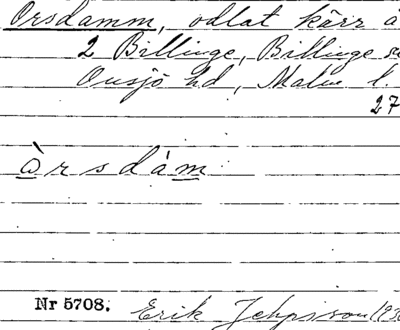 Orsdamm, odlat kärr å
2 Billinge, Billinge s
Onsjö hd, Malm. l.
27
òrsdàm
Nr 5708. Erik